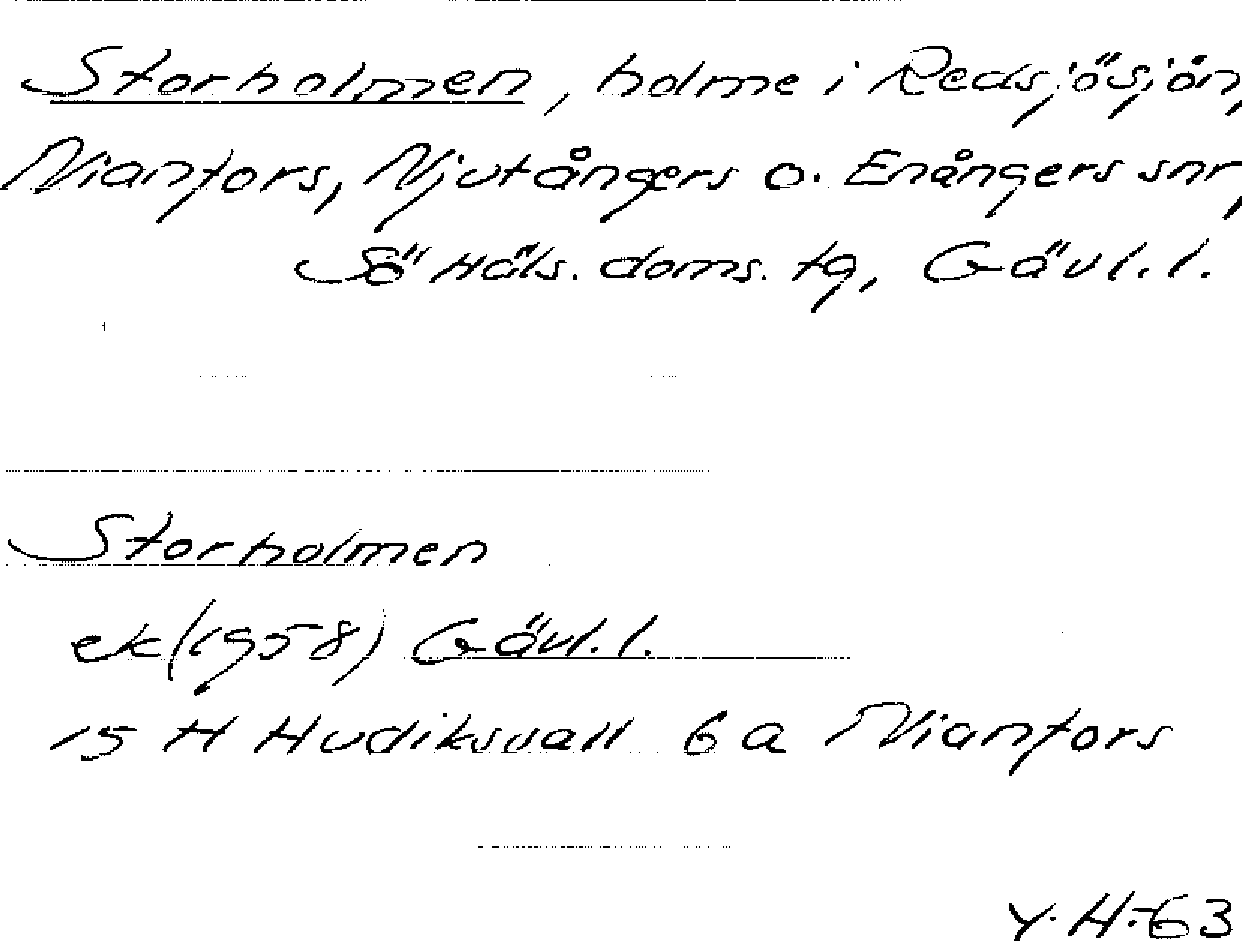 Storholmen, holme i Redsjösjön,
Nianfors, Njutångers o. Enångers snr,
Sö Häls. doms. tg, Gävl. l.
Storholmen
ek (1958) Gävl. l.
15 H Hudiksvall 6 a Nianfors
Y. H-63